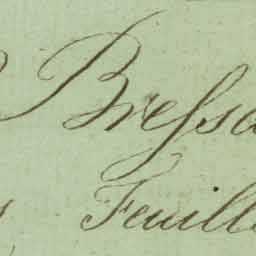 Bressa
Feuill